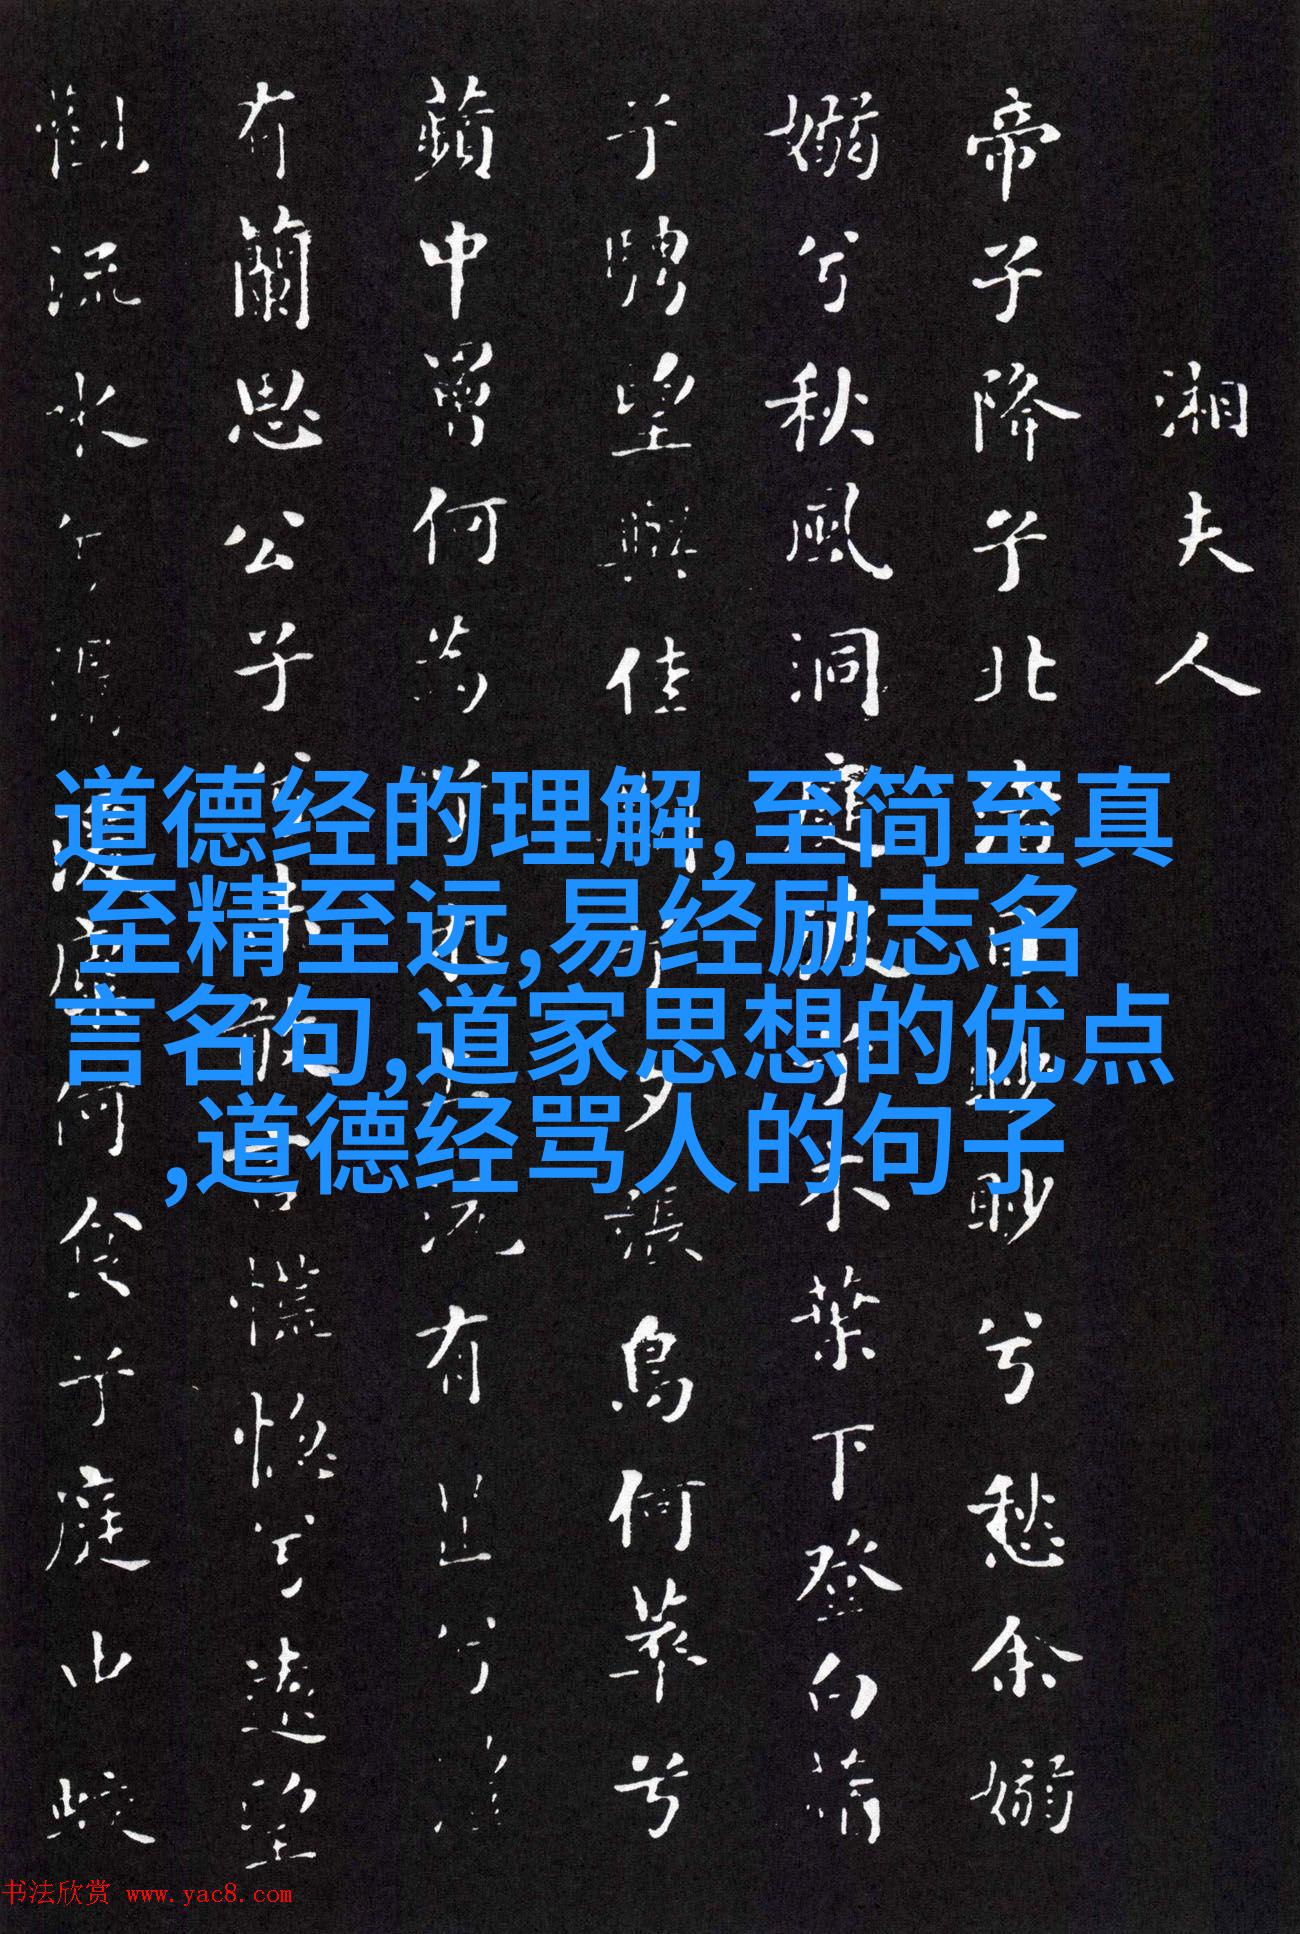 湘夫人
帝子降兮北渚眇眇兮愁余嫋
嫋兮秋風洞庭波兮木葉下登白薠
兮騁望與佳期兮夕張鳥何萃兮
蘋中罾何為兮木上沅有芷兮澧
有蘭思公子兮未敢言慌惚兮遠望
觀流水兮潺湲麋何食兮庭中蛟
道德经的理解,至简至真
至精至远,易经励志名
言名句,道家思想的优点
,道德经骂人的句子
书法欣赏 www.yac8.com